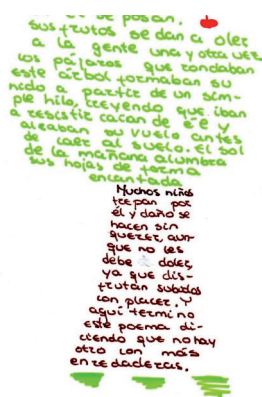 se posan,
sus frutos se dan a oler
a la gente una y otra vez,
los pájaros que rondaban
este árbol formaban su
nido a partir de un sim-
ple hilo, creyendo que iban
a resistir caían de él y
aleaban su vuelo antes
de caer al suelo. El sol
de la mañana alumbra
sus hojas de forma
encantada.
Muchos niños
trepan por
él y daño se
hacen sin
querer, aun-
que no les
debe doler,
ya que dis-
frutan subidos
con placer. Y
aquí termino
este poema di-
ciendo que no hay
otro con más
enredaderas.